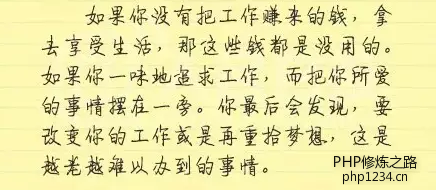 如果你没有把工作赚来的钱，拿
去享受生活，那这些钱都是没用的。
如果你一味地追求工作，而把你所爱
的事情摆在一旁。你最后会发现，要
改变你的工作或是再重拾梦想，这是
越老越难以办到的事情。
PHP修炼之路
php1234.cn